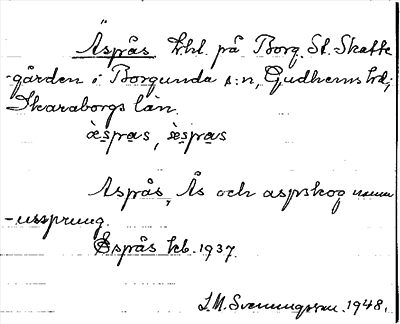 Äspås trkl. på Borg. St. Skatte
-gården i Borgunda s:n, Gudhems hd,
Skaraborgs län.
æspas, æspas
Aspås, Ås och aspskog namn
-ursprung.
Espås kb. 1937.
S.M. Svenungsson. 1948.